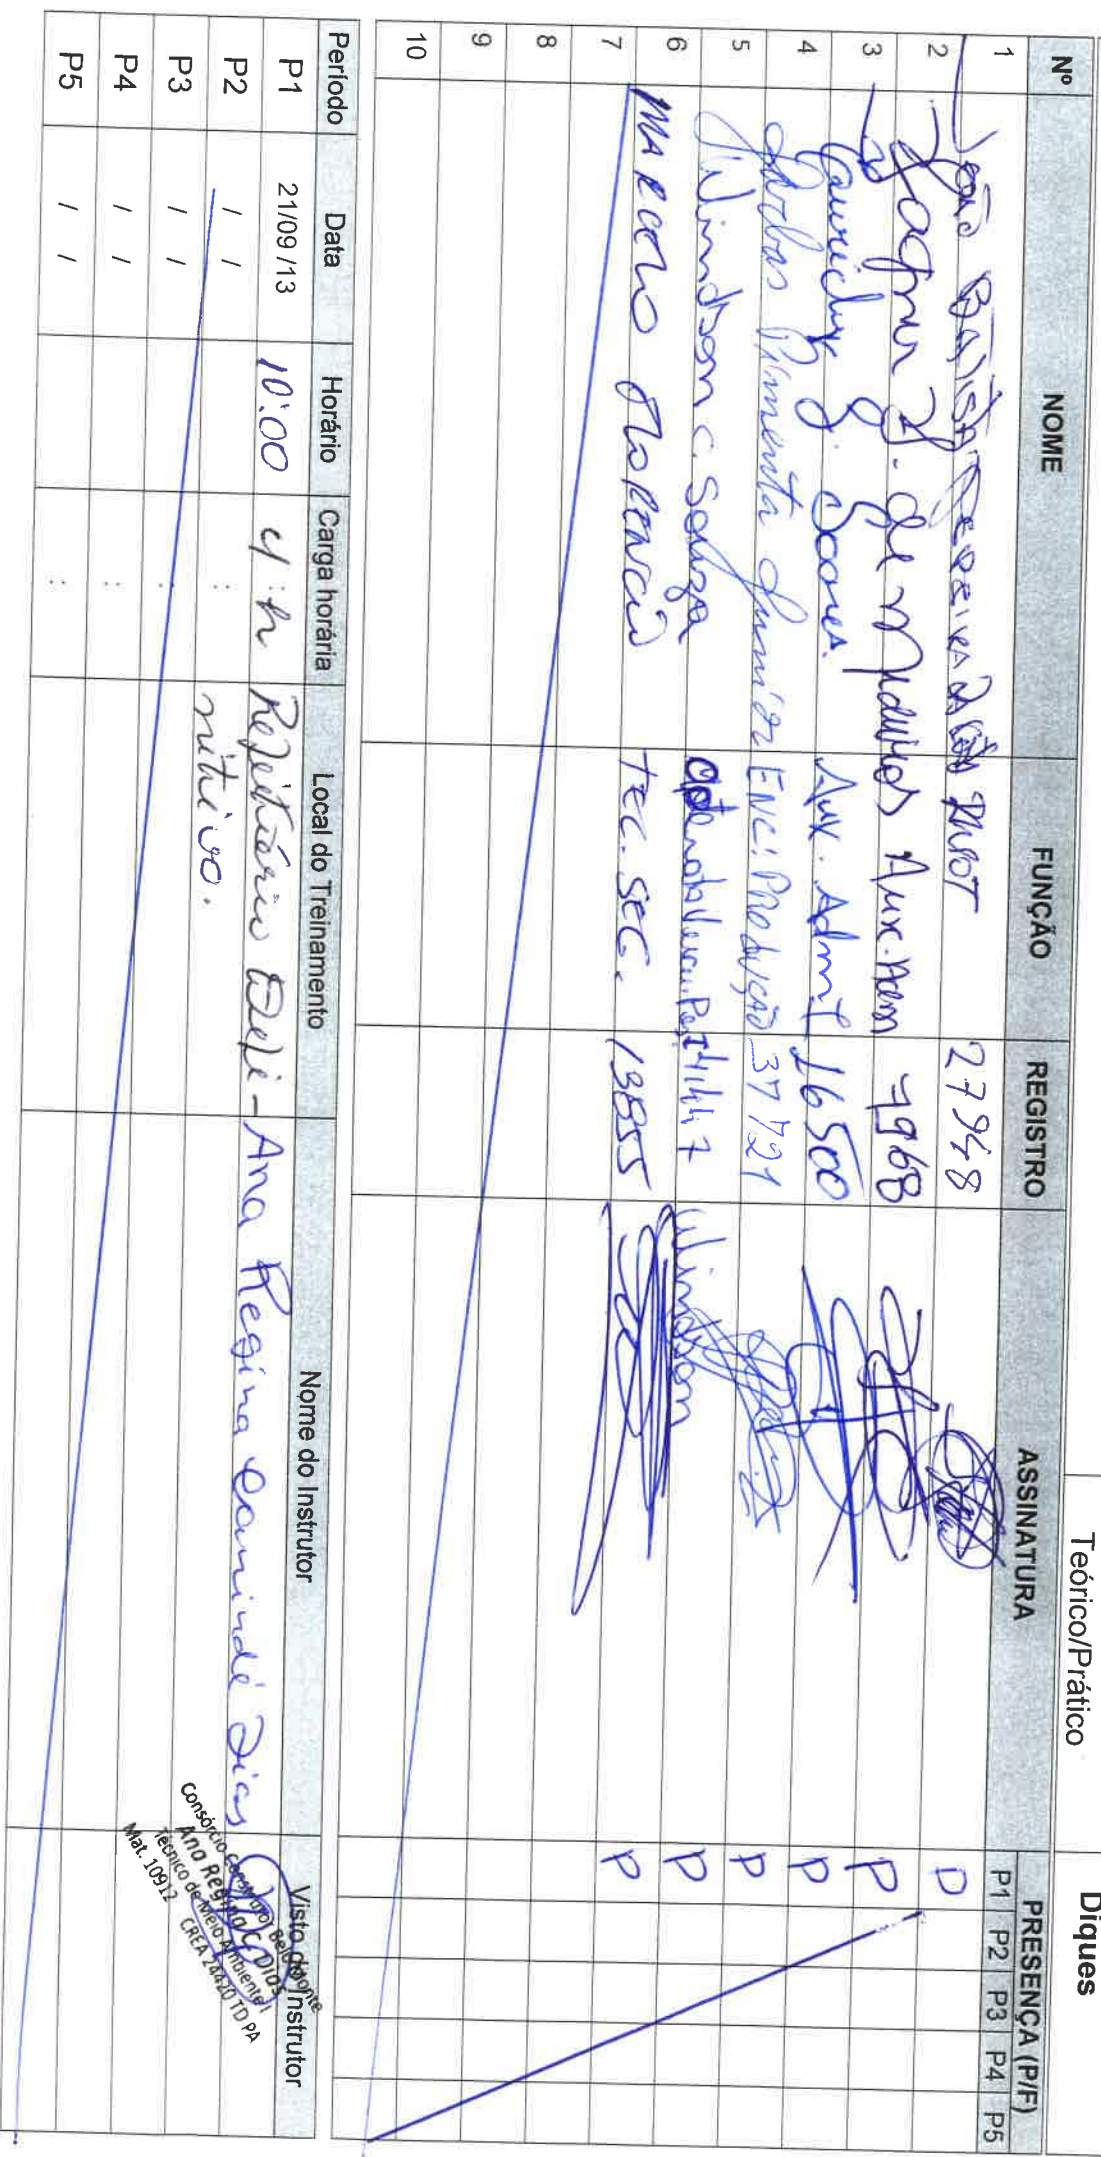 Teórico/Prático Diques
Nº NOME FUNÇÃO REGISTRO ASSINATURA PRESENÇA (P/F)
P1 P2 P3 P4 P5
1 João Batista 27948 P
2 7968 P
3 Soares. Aux. Adm 16500 P
4 Pimenta Junior ENC. PRODUÇÃO 37721 P
5 Windson C. Souza Windson P
6 MARCELO FLORENCIO TEC. SEG. 13855 P
7
8
9
10
Período Data Horário Carga horária Local do Treinamento Nome do Instrutor Visto do Instrutor
P1 21/09/13 10:00 4:h Refeitório Defi- Ana Regina Canindé Dias
P2 / / : nitivo.
P3 / / :
P4 / / :
P5 / / :
Consórcio Construtor Belo Monte
Ana Regina C. Dias
Técnico de Meio Ambiente I
Mat. 10912 CREA 24420 TD PA